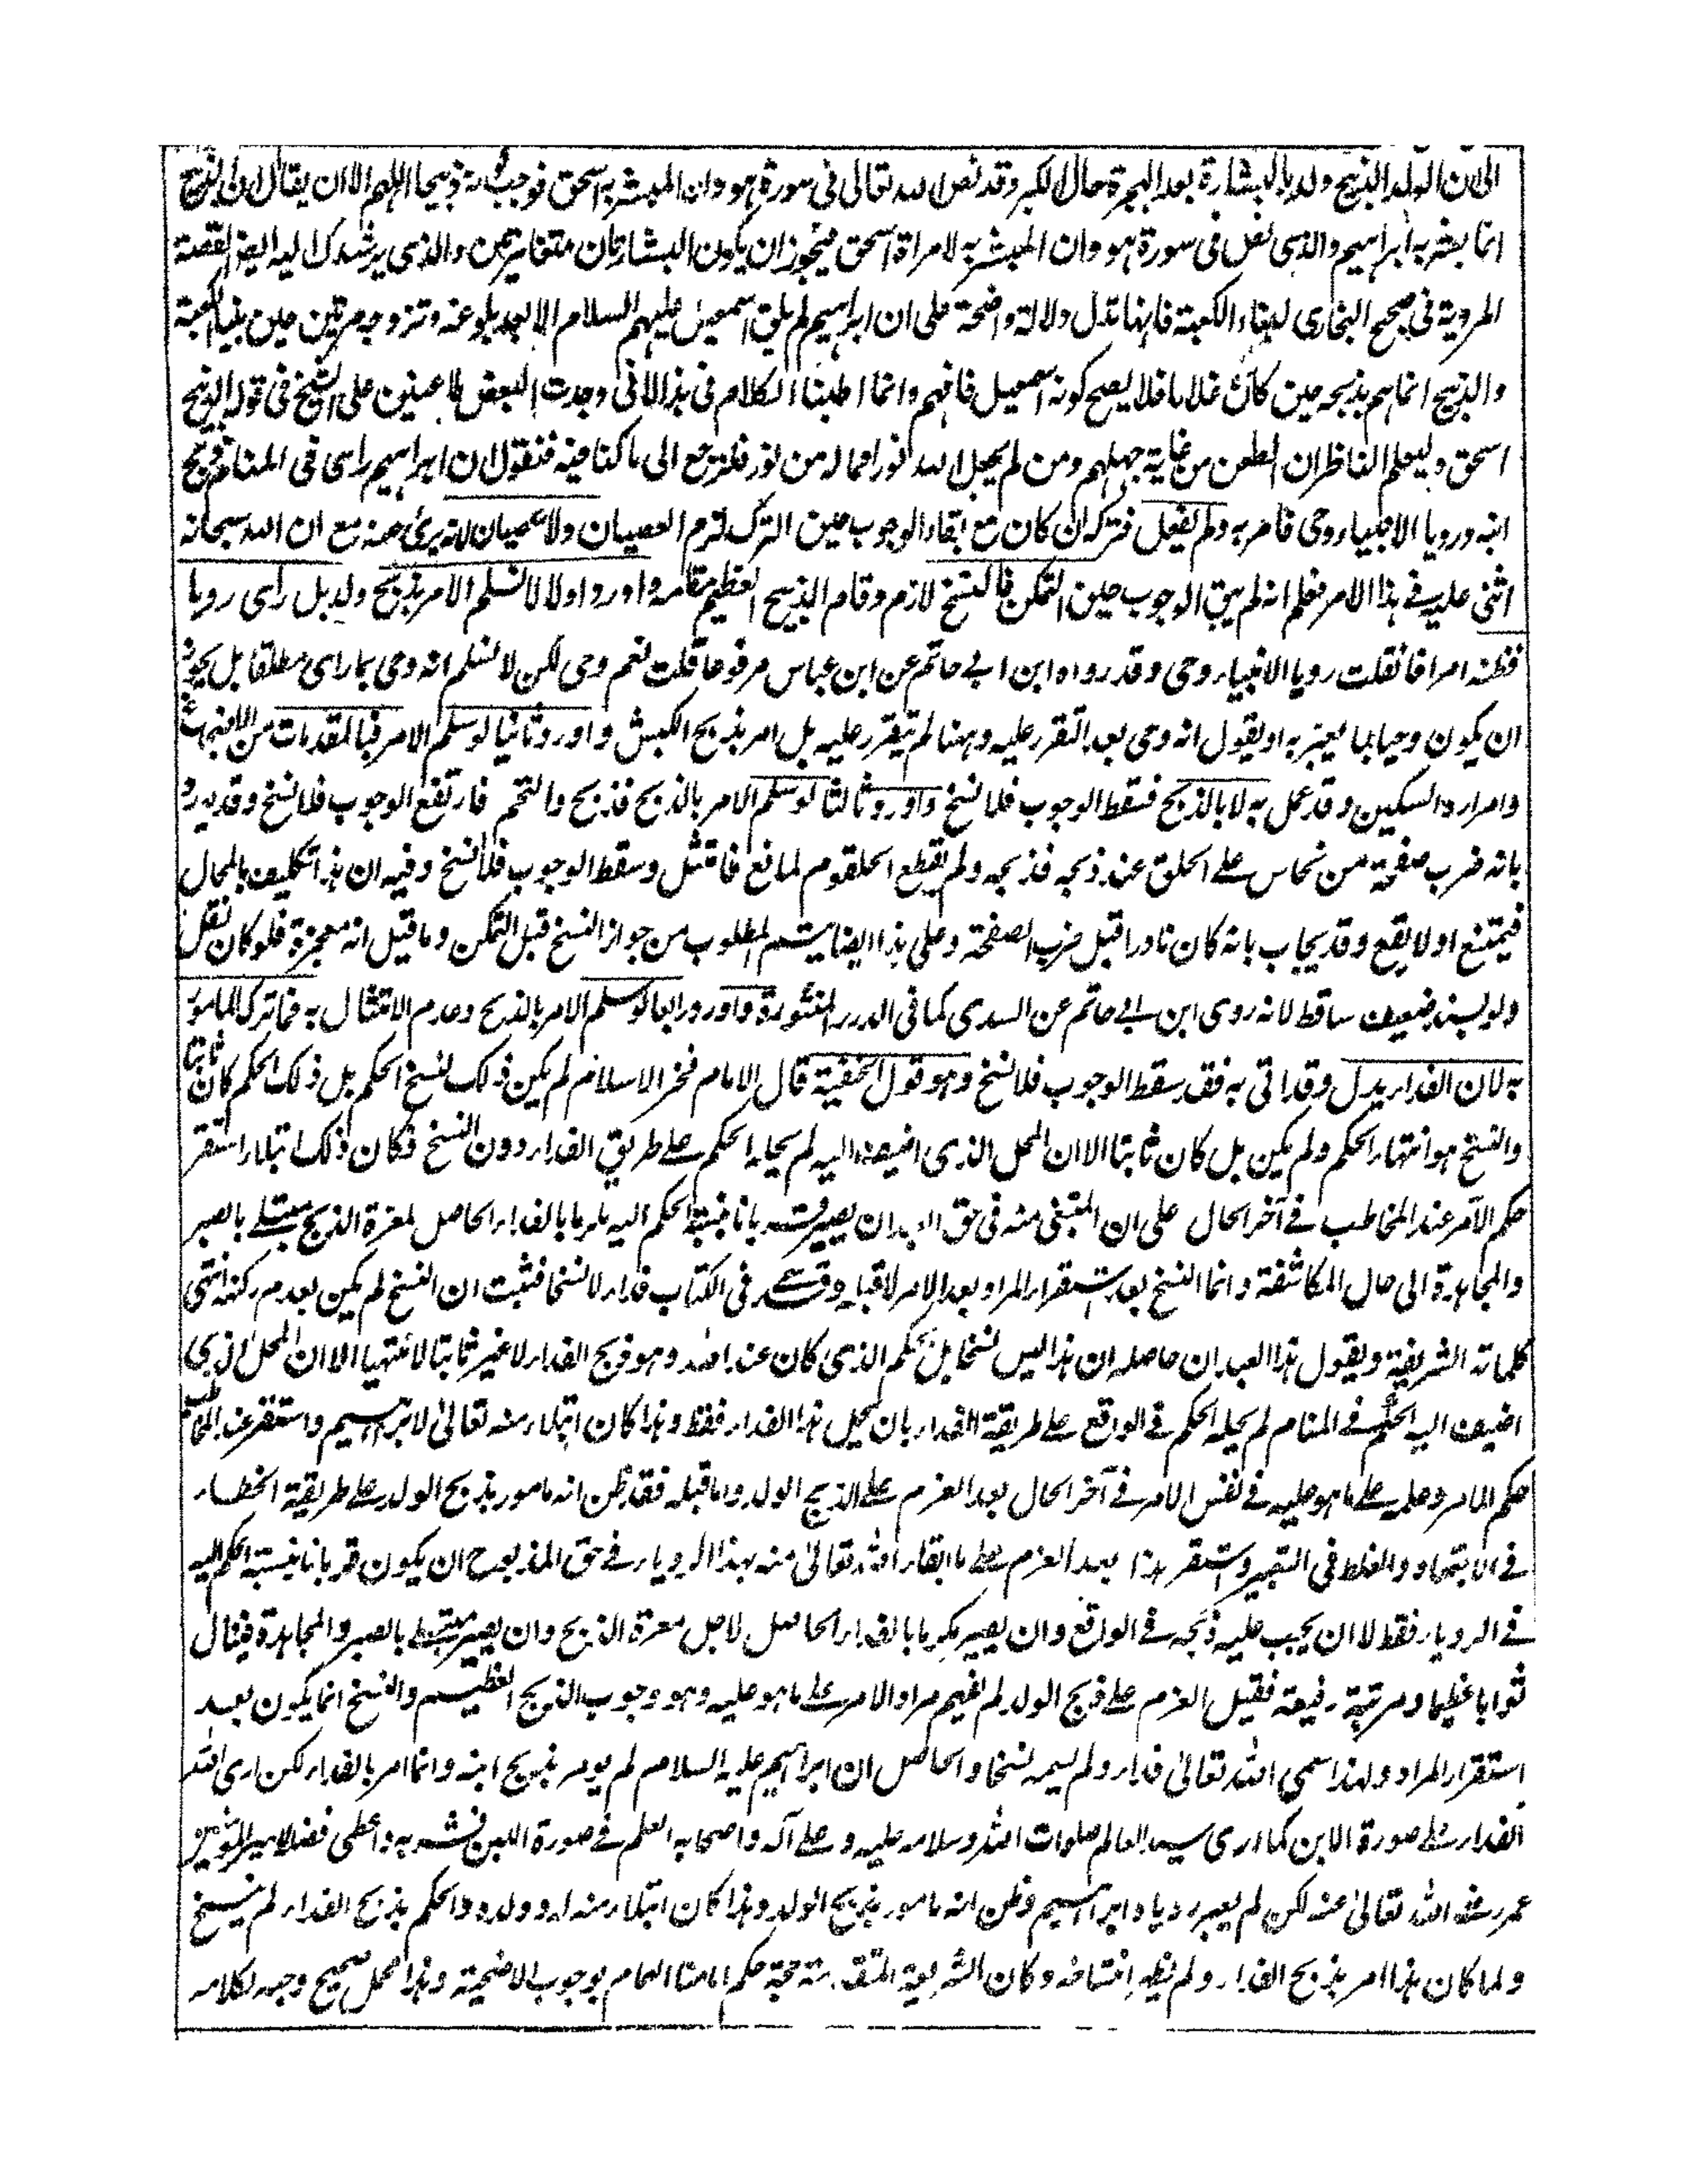 الى ان الولد الذبيح ولد بالبشارة بعد الهجرة حال الكبر وقد نص الله تعالى فى سورة هود ان المبشر به اسحق فوجب كونه ذبيحا اللهم الا ان يقال ان الذبيح
انما بشر به ابراهيم والذى نص فى سورة هود ان المبشر به لامراة اسحق فيجوز ان يكون البشارتان متغايرتين والذى يرشدك اليه ايضا القصة
المروية فى صحيح البخارى لبناء الكعبة فانها تدل دلالة واضحة على ان ابراهيم لم يلق اسمعيل عليهم السلام الا بعد بلوغه وتزوجه مرتين حين بنيا الكعبة
والذبيح انما هم بذبحه حين كان غلاما فلا يصح كونه اسمعيل فافهم وانما اطنبنا الكلام فى هذا لانى وجدت البعض طاعنين على الشيخ فى قوله الذبيح
اسحق وليعلم الناظران الطعن من غاية جهلهم ومن لم يجعل الله له نورا فما له من نور فلنرجع الى ما كنا فيه فنقول ان ابراهيم راى فى المنام ذبح
ابنه ورويا الانبياء وحى فامر به ولم يفعل فتركه ان كان مع ابقاء الوجوب حين الترك لزم العصيان ولا عصيان لانه برئ عنه مع ان الله سبحانه
اثنى عليه فى هذا الامر فعلم انه لم يبق الوجوب حين التمكن فالنسخ لازم وقام الذبح العظيم مقامه واورد اولا لا نسلم الامر بذبح ولد بل راى رويا
فظنه امرا فان قلت رويا الانبياء وحى وقد رواه ابن ابى حاتم عن ابن عباس مرفوعا قلت نعم وحى لكن لا نسلم انه وحى بما راى مطلقا بل يجوز
ان يكون وحيا بما يعبر به او يقول انه وحى بعد التقرر عليه وههنا لم يتقرر عليه بل امر بذبح الكبش واورد ثانيا لو سلم الامر فبالمقدمات من
وامرار السكين وقد عمل به لا بالذبح فسقط الوجوب فلا نسخ واورد ثالثا لو سلم الامر بالذبح فذبح والتحم فارتفع الوجوب فلا نسخ وقد يورد
بانه ضرب صفحة من نحاس على الحلق عند ذبحه فذبحه ولم يقطع الحلقوم لمانع فامتثل وسقط الوجوب فلا نسخ وفيه ان هذا تكليف بالمحال
فيمتنع او لا يقع وقد يجاب بانه كان نادرا قبل ضرب الصفحة وعلى هذا ايضا يتم المطلوب من جواز النسخ قبل التمكن وما قيل انه معجزة فلو كان نقل
ولو بسند ضعيف ساقط لانه روى ابن ابى حاتم عن السدى كما فى الدرر المنثورة واورد رابعا لو سلم الامر بالذبح وعدم الامتثال به فما ترك المامور
به لان الفداء بدل وقد اتى به فقد سقط الوجوب فلا نسخ وهو قول الحنفية قال الامام فخر الاسلام لم يكن ذلك لنسخ الحكم بل ذلك الحكم كان ثابتا
والنسخ هو انتهاء الحكم ولم يكن بل كان ثابتا الا ان المحل الذى اضيف اليه لم يحله الحكم على طريق الفداء دون النسخ فكان ذلك ابتلاء استقر
حكم الامر عند المخاطب فى آخر الحال على ان المبتغى منه فى حق الولد ان يصير قربانا بنسبة الحكم اليه مكرما بالفداء الحاصل لمعرة الذبح مبتلى بالصبر
والمجاهدة الى حال المكاشفة وانما النسخ بعد استقرار المراد بعد الامر لا قبله وقد سمى فى الكتاب فداء لا نسخا فثبت ان النسخ لم يكن بعدم ركنه انتهى
كلماته الشريفة ويقول هذا العبد ان حاصله ان هذا ليس نسخا بل الحكم الذى كان عند الله وهو ذبح الفداء لا غير ثابتا لا منتهيا الا ان المحل الذى
اضيف اليه الحكم فى المنام لم يحله الحكم فى الواقع على طريقة الفداء بان يحل هذا الفداء فقط وهذا كان ابتلاء منه تعالى لابراهيم واستقر عند المخاطب
حكم الامر وعلمه على ما هو عليه فى نفس الامر فى آخر الحال بعد العزم على الذبح الولد واما قبله فقد ظن انه مامور بذبح الولد على طريقة الخطاء
فى الاجتهاد والغلط فى التعبير واستقر هذا بعد العزم على ما ابقاه الله تعالى منه بهذا الرويا فى حق المذبوح ان يكون قربانا بنسبة الحكم اليه
فى الرويا فقط لا ان يجب عليه ذبحه فى الواقع وان يصير مكرما بالفداء الحاصل لاجل معرة الذبح وان يصير مبتلى بالصبر والمجاهدة فينال
ثوابا عظيما ومرتبة رفيعة فقبل العزم على ذبح الولد لم يفهم مراد الامر على ما هو عليه وهو وجوب الذبح العظيم والنسخ انما يكون بعد
استقرار المراد ولهذا سمى الله تعالى فداء ولم يسمه نسخا والحاصل ان ابراهيم عليه السلام لم يومر بذبح ابنه وانما امر بالفداء لكن ارى الله
الفداء على صورة الابن كما ارى سيد العالم صلوات الله وسلامه عليه وعلى آله واصحابه العلم فى صورة اللبن فشربه واعطى فضله امير المؤمنين
عمر رضى الله تعالى عنه لكن لم يعبر رؤياه ابراهيم وظن انه مامور بذبح الولد وهذا كان ابتلاء منه له وولده والحكم بذبح الفداء لم ينسخ
ولما كان هذا امر بذبح الفداء ولم يظهر انتساخه وكان الشريعة المتقدمة حجة حكم امامنا الهمام بوجوب الاضحية وهذا محمل صحيح وجيه لكلامه